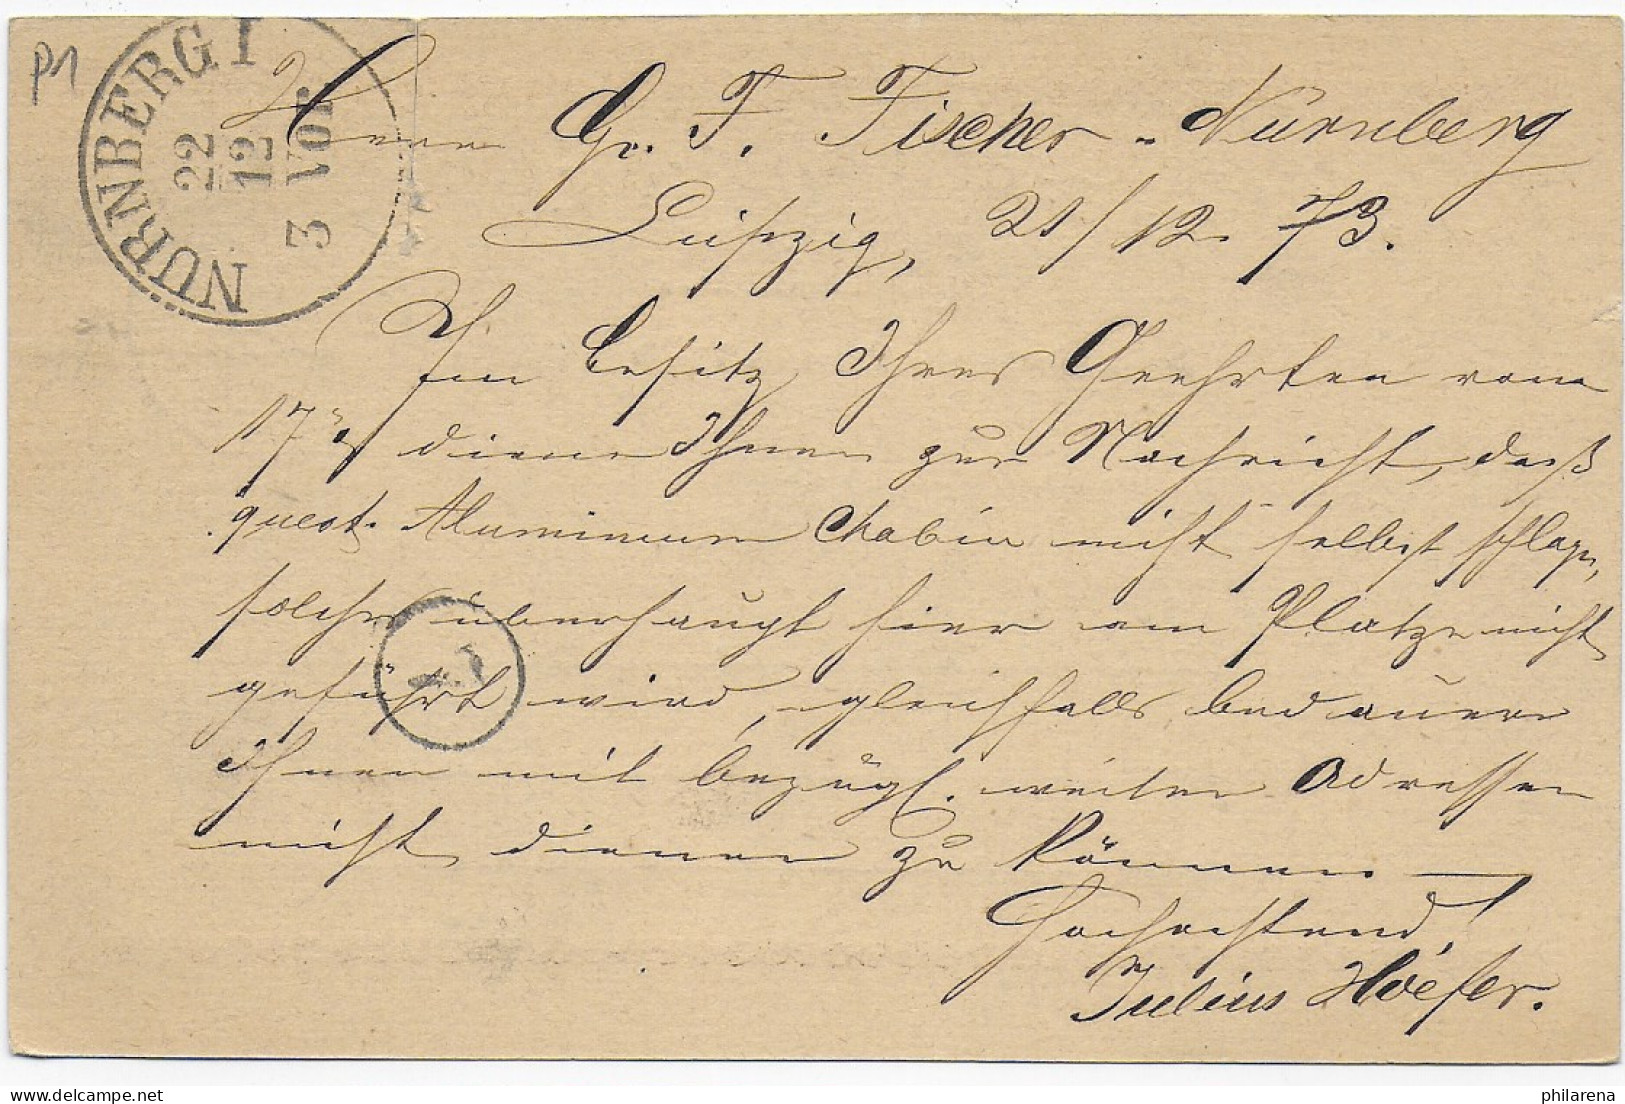 P1
NÜRNBERG I
22
12
3 VOR
Herrn Gr. F. Fischer - Nürnberg
Leipzig, 21/12. 73.
Im Besitz Ihres Geehrten vom
17. diene Ihnen zur Nachricht, daß
quest. Aluminium nicht selbst schlage,
solches überhaupt hier am Platze nicht
geführt wird, gleichfalls bedauere
Ihnen mit bezügl. weiteren Adressen
nicht dienen zu können. —
Hochachtend,
Julius Höefer.
philarena.com